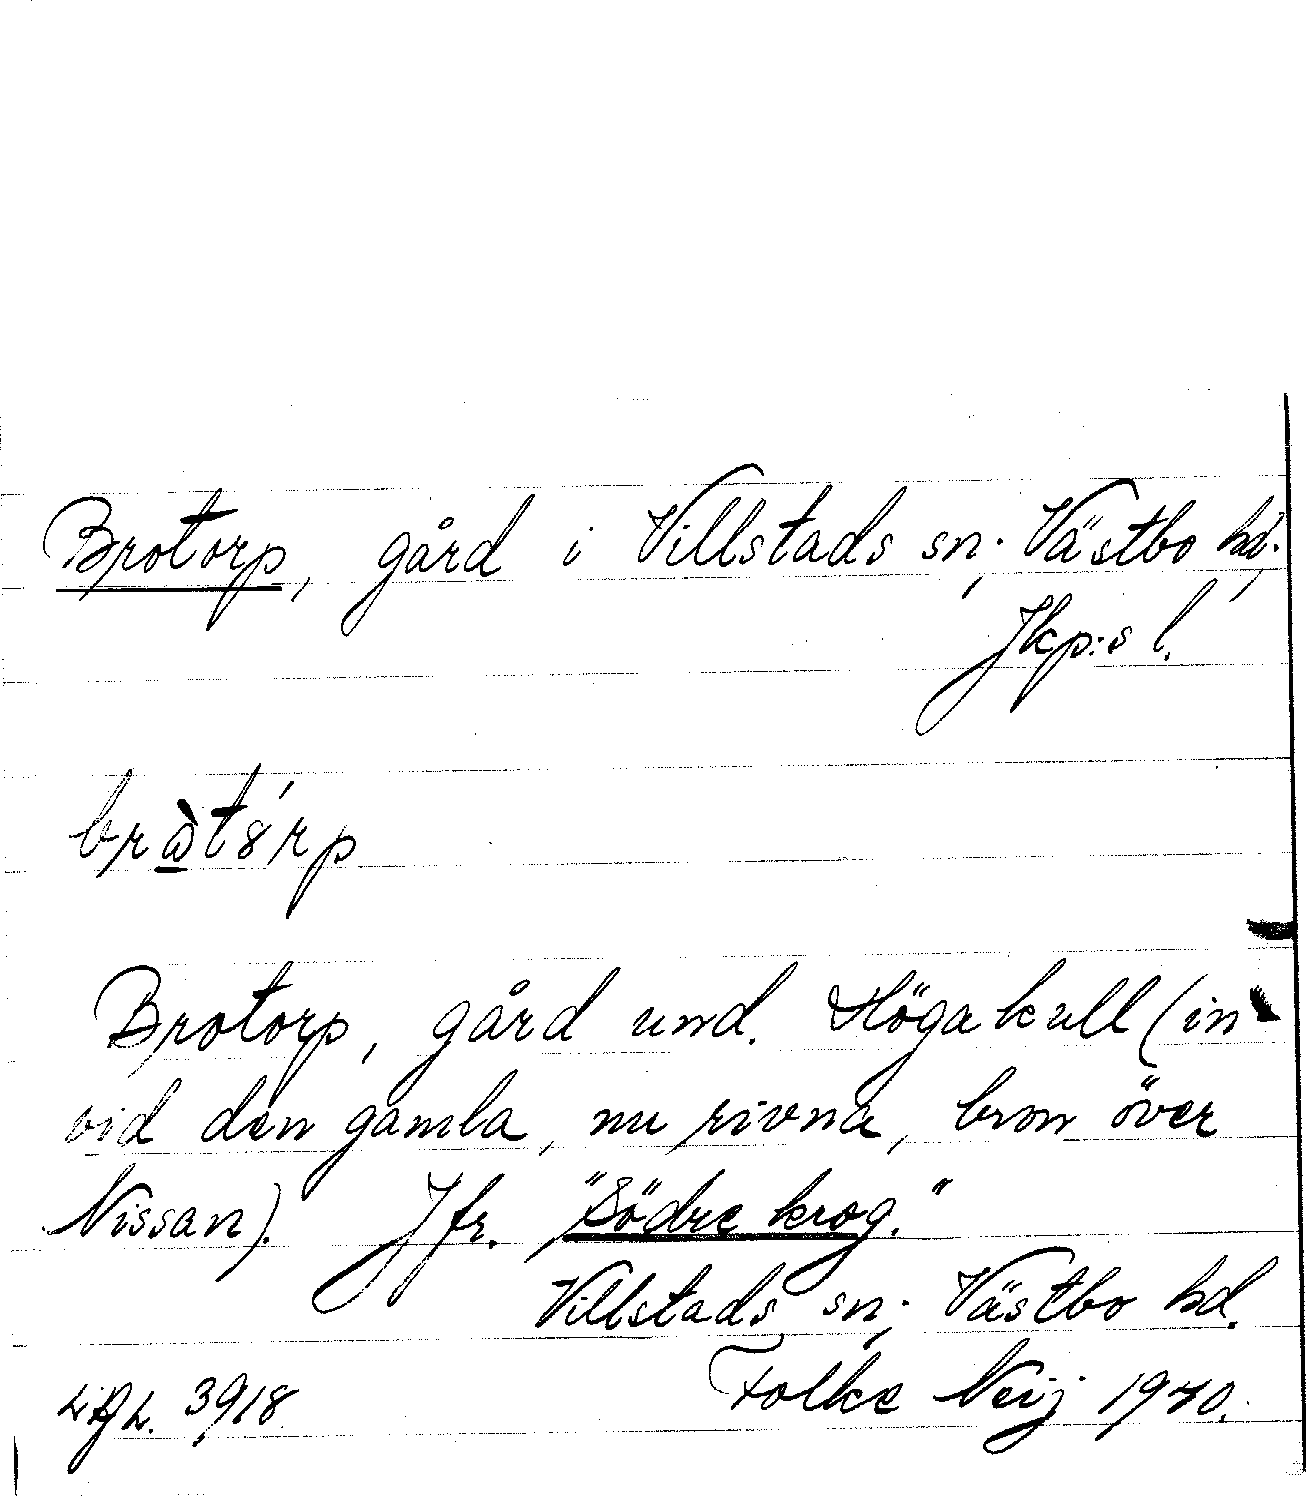 Brotorp, gård i Villstads sn; Västbo hd;
Jkp:s l.
Brotorp, gård und. Höga kull (in-
vid den gamla, nu rivna, bron över
Nissan). Jfr. "Södre krog."
Villstads sn; Västbo hd.
3918 Folke Neij 1940.